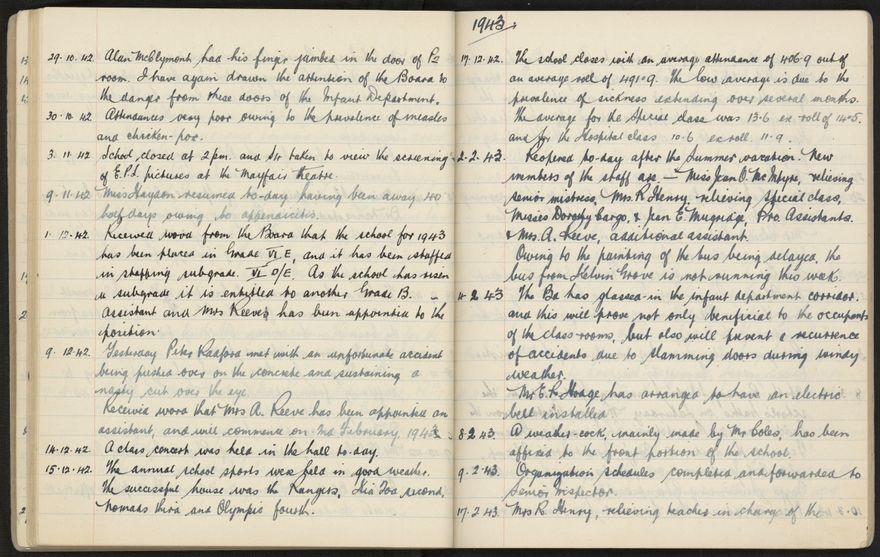 29.10.42 Alan McClymont had his finger jambed in the door of P2
room. I have again drawn the attention of the Board to
the danger from these doors of the Infant Department.
30.10.42 Attendances very poor owing to the prevalence of measles
and chicken-pox.
3.11.42 School closed at 2 pm. and taken to view the screening
of E.P.S. pictures at the Mayfair Theatre.
9.11.42 Miss Haydon resumed to-day having been away 40
half days owing to appendicitis.
1.12.42 Received word from the Board that the school for 1943
has been placed in Grade VI E, and it has been staffed
in staffing subgrade VI D/E. As the school has risen
a subgrade it is entitled to another Grade B.
Assistant and Mrs Reeve has been appointed to the
position.
9.12.42 Yesterday Peter Radford met with an unfortunate accident
being pushed over on the concrete and sustaining a
nasty cut over the eye.
Received word that Mrs A. Reeve has been appointed an
assistant, and will commence on 2nd February 1943
14.12.42 A class concert was held in the hall to-day.
15.12.42. The annual school sports were held in good weather.
The successful house was the Rangers, Kia Toa second,
Nomads third and Olympis fourth.
1943.
17.12.42. The school closes with an average attendance of 406.9 out of
an average roll of 491.9. The low average is due to the
prevalence of sickness extending over several months.
The average for the Special class was 13.6 ex roll of 14.5,
and for the Hospital class 10.6 ex roll 11.9.
2.2.43. Reopened to-day after the Summer vacation. New
members of the staff are — Miss Jean O. McIntyre, relieving
senior mistress, Mrs. R. Henry, relieving Special class,
Misses Dorothy Cargo, & Jean E. Mugridge, Pro. Assistants.
& Mrs. A. Reeve, additional assistant.
Owing to the painting of the bus being delayed, the
bus from Kelvin Grove is not running this week.
4.2.43 The Bd has glassed-in the infant department corridor,
and this will prove not only beneficial to the occupants
of the class-rooms, but also will prevent a recurrence
of accidents due to slamming doors during windy
weather.
Mr E. R. Hodge has arranged to have an electric
bell installed
8.2.43 A weather-cock, mainly made by Mr Coles, has been
affixed to the front portion of the school.
9.2.43. Organization schedules completed and forwarded to
Senior Inspector.
17.2.43. Mrs R. Henry, relieving teacher in charge of the